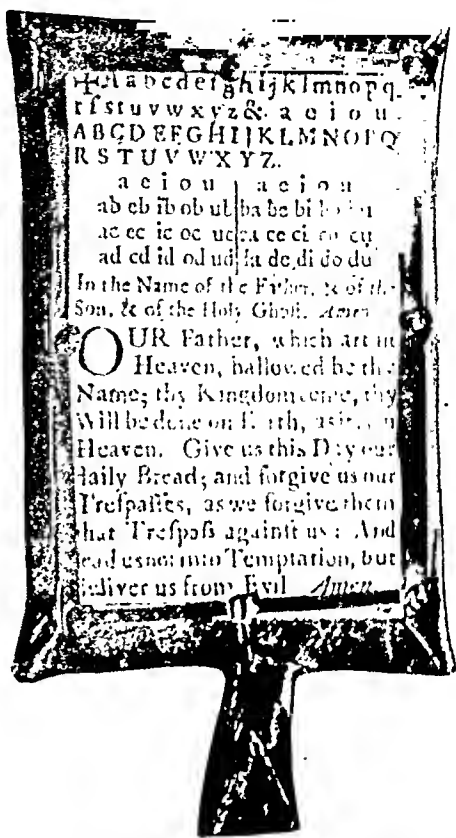 ✠Aabcdefghijklmnopq
rſstuvwxyz& a e i o u
ABCDEFGHIJKLMNOPQ
RSTUVWXYZ.
a e i o u a e i o u
ab eb ib ob ub ba be bi bo bu
ac ec ic oc uc ca ce ci co cu
ad ed id od ud da de di do du
In the Name of the Father, & of the
Son, & of the Holy Ghoſt. Amen
OUR Father, which art in
Heaven, hallowed be thy
Name; thy Kingdom come, thy
Will be done on Earth, as it is in
Heaven. Give us this Day our
daily Bread; and forgive us our
Treſpaſſes, as we forgive them
that Treſpaſs againſt us: And
lead us not into Temptation, but
deliver us from Evil Amen